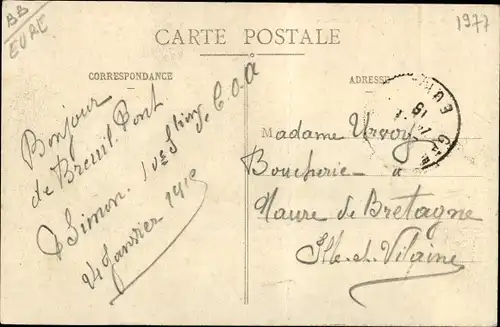 BB
EURE
1977
CARTE POSTALE
CORRESPONDANCE
ADRESSE
Bonjour
de Breuil-Pont
Simon.
24 Janvier 1915
C.O.A
Madame Urvoy
Boucherie
Maure de Bretagne
Ille-et-Vilaine